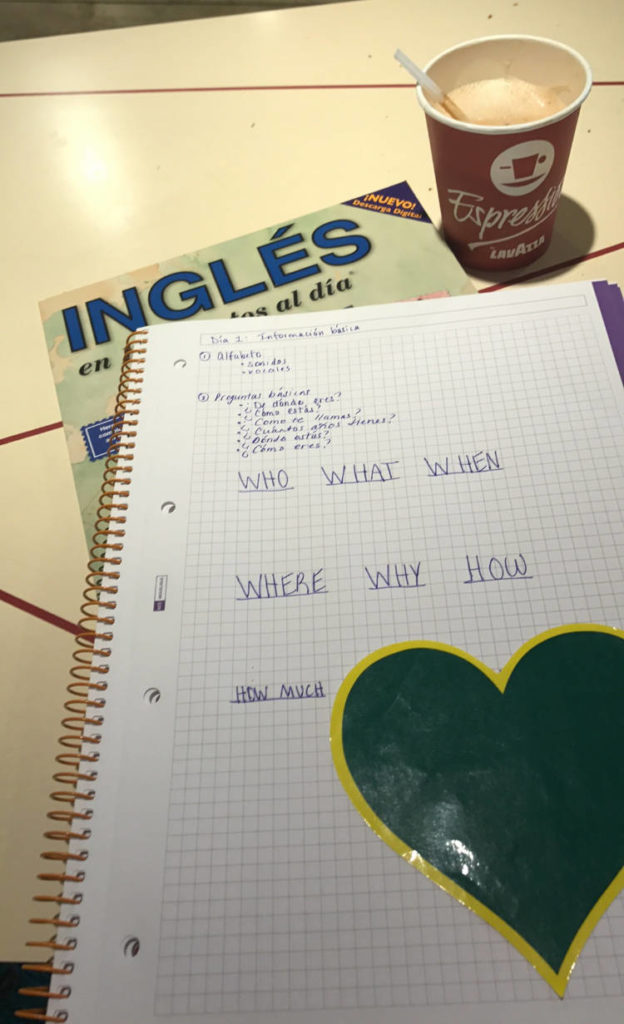 ¡NUEVO!
Descarga Digital
INGLÉS
en
tos al día
Espression
LAVAZZA
Día 1: Información básica
① Alfabeto
• sonidos
• vocales
② Preguntas básicas
• ¿De dónde eres?
• ¿Cómo estás?
• ¿Como te llamas?
• ¿Cuántos años tienes?
• ¿Dónde estás?
• ¿Cómo eres?
WHO WHAT WHEN
WHERE WHY HOW
HOW MUCH